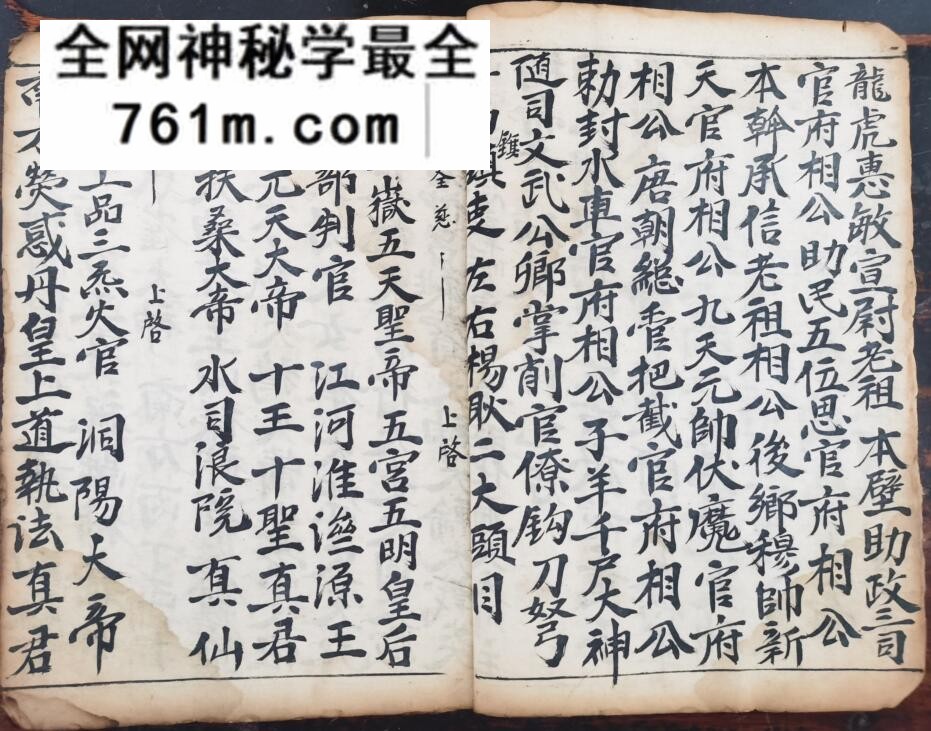 全网神秘学最全
761m.com
龍虎惠敏宣尉老祖 本壁助政三司
官府相公助民五伍思官府相公
本幹承信老祖相公後鄉穆帥新
天官府相公九天元帥伏魔官府
相公 唐朝總管把截官府相公
勅封水車官府相公子羊千户大神
随司文武公卿掌削官僚鈎刀弩
左右楊耿二大頭目
上啓
嶽五天聖帝五宮五明皇后
部判官 江河淮濟源王
元天大帝 十王十聖真君
扶桑大帝 水司浪院真仙
上啓
上品三炁火官 洞陽大帝
熒惑丹皇上道執法真君